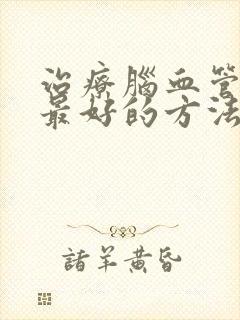 治療腦血管
最好的方法
諸羊黄昏